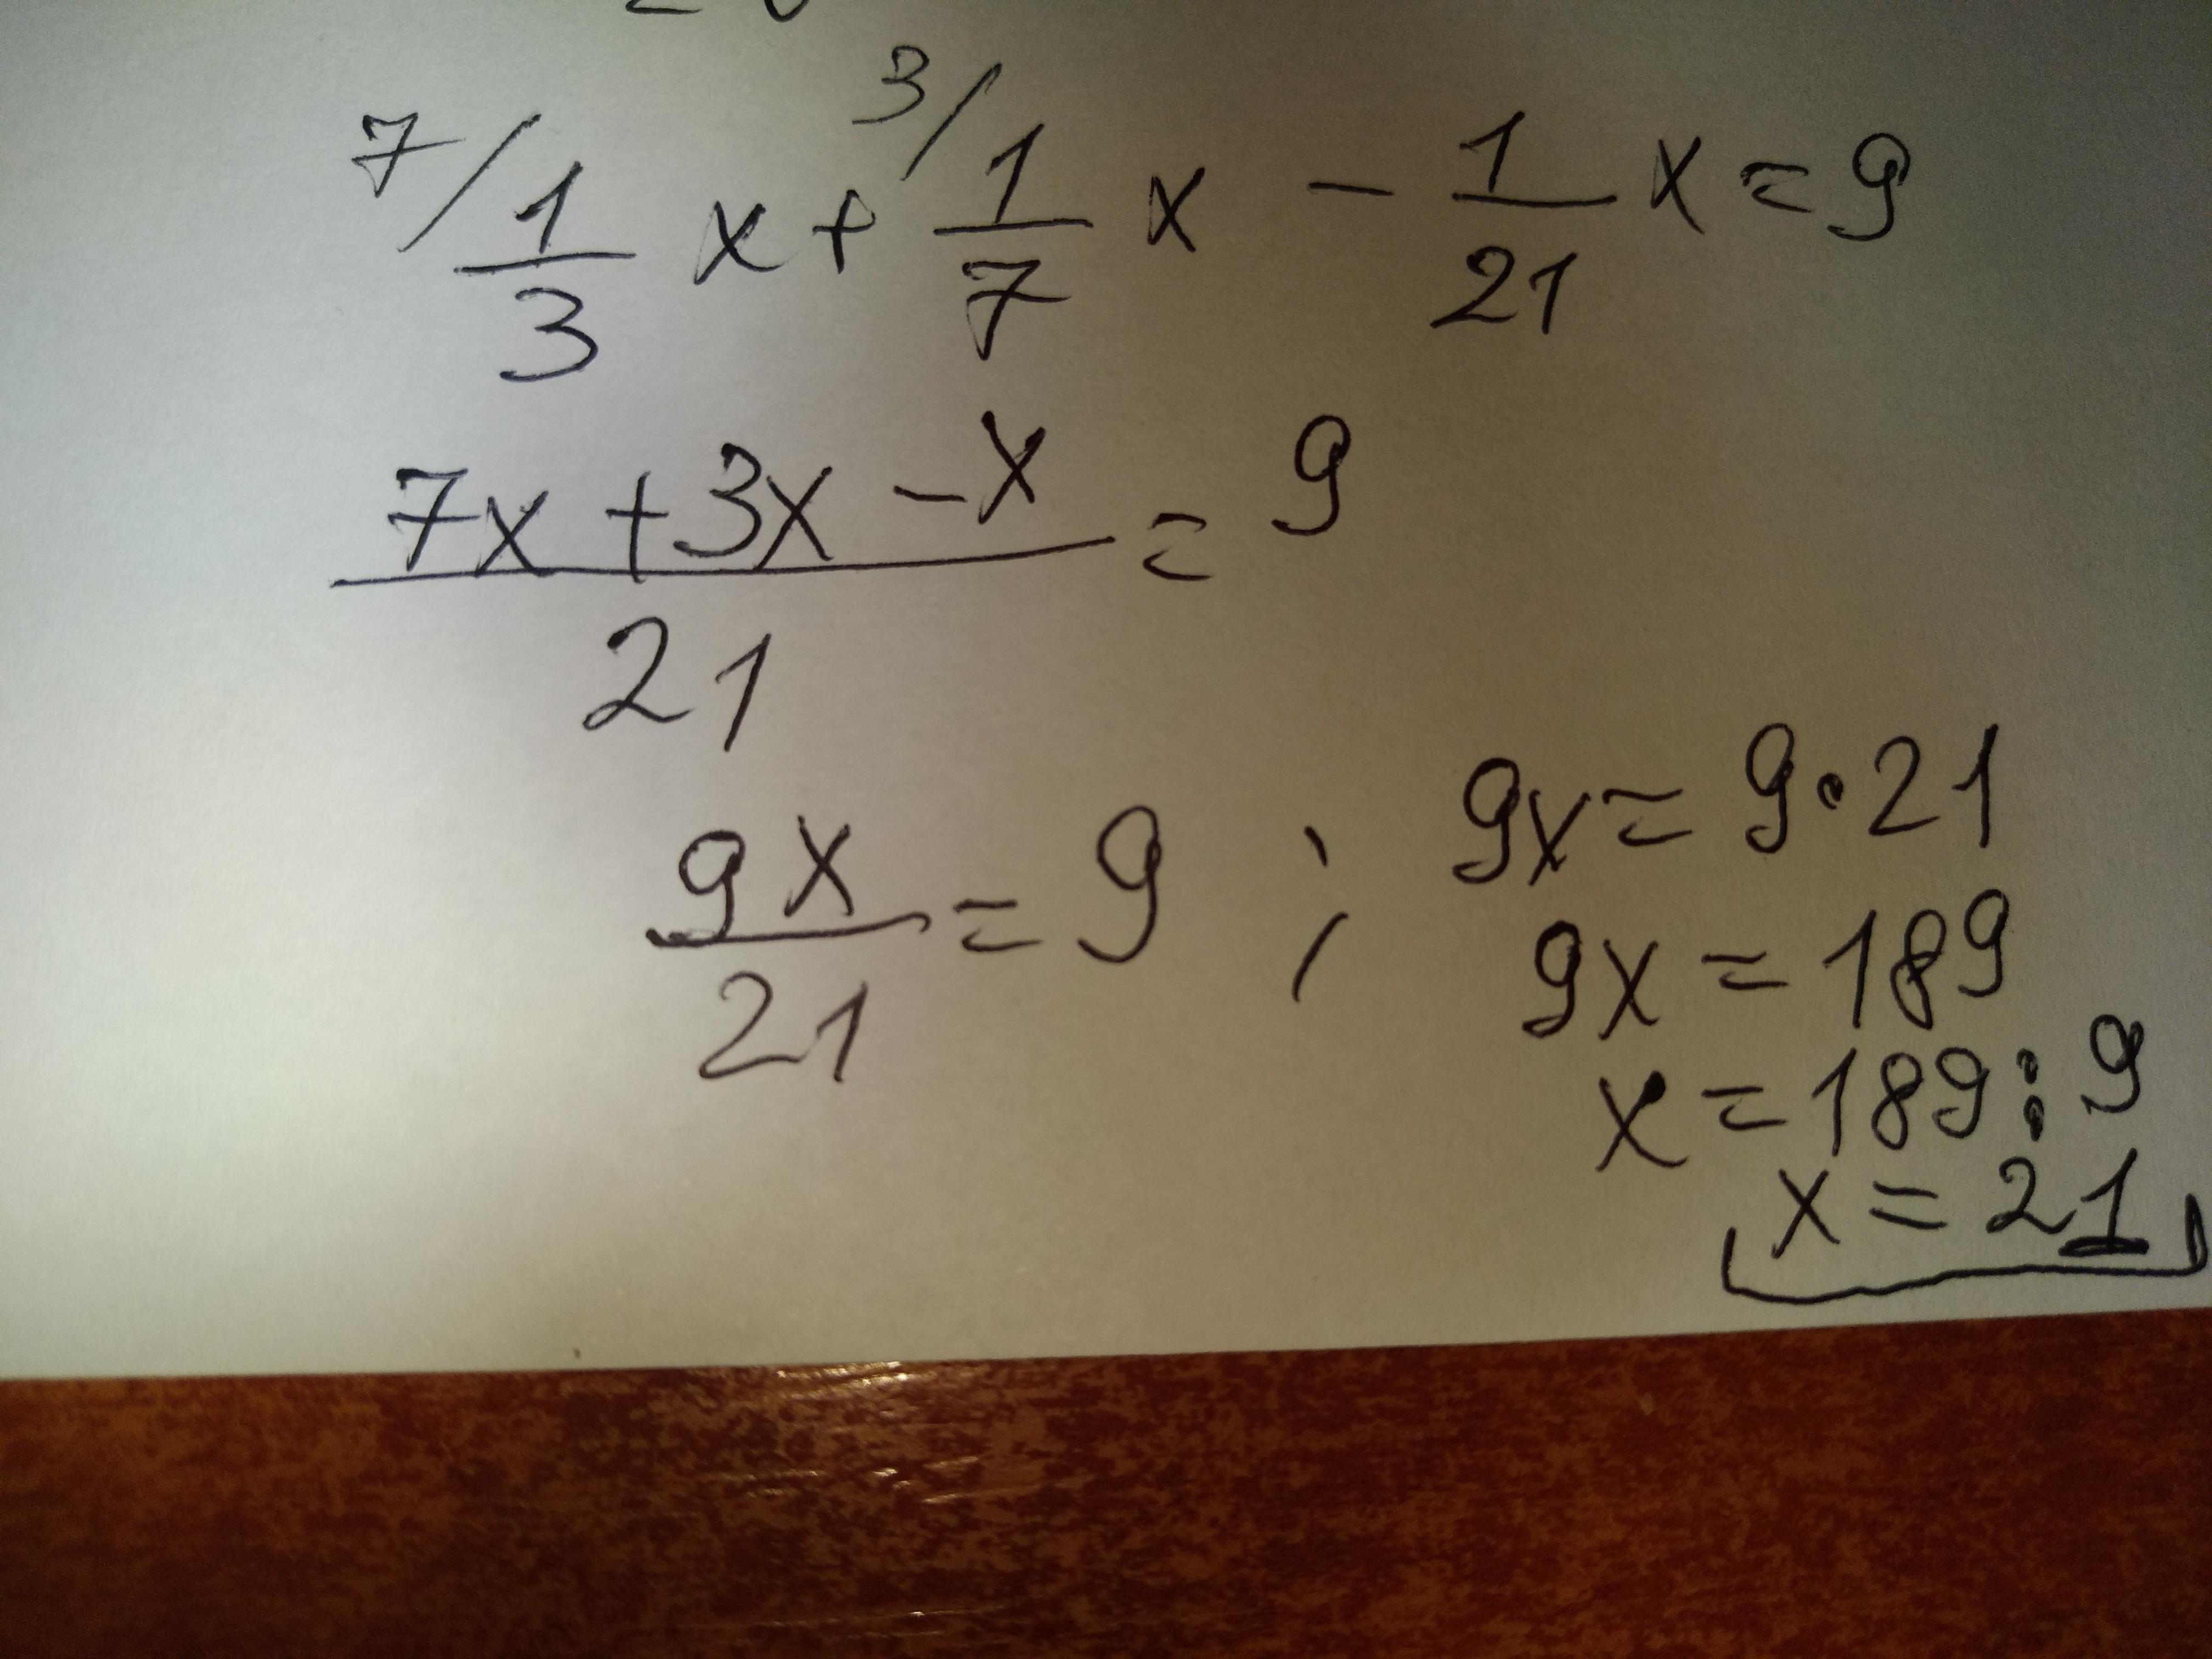 7/ 1/3 x + 3/ 1/7 x - 1/21 x = 9
7x + 3x - x / 21 = 9
9x/21 = 9 ;
9x = 9 · 21
9x = 189
x = 189 : 9
x = 21